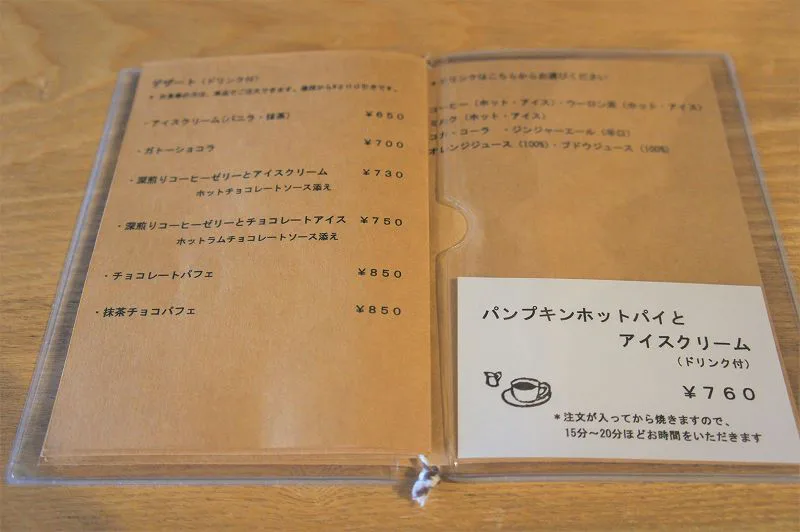 デザート（ドリンク付）
＊お食事の方は、単品でご注文できます。値段から¥２００引きです。
・アイスクリーム(バニラ・抹茶) ¥６５０
・ガトーショコラ ¥７００
・深煎りコーヒーゼリーとアイスクリーム ¥７３０
ホットチョコレートソース添え
・深煎りコーヒーゼリーとチョコレートアイス ¥７５０
ホットラムチョコレートソース添え
・チョコレートパフェ ¥８５０
・抹茶チョコパフェ ¥８５０
＊ドリンクはこちらからお選びください
コーヒー（ホット・アイス）・ウーロン茶（ホット・アイス）
ミルク（ホット・アイス）
コカ・コーラ ・ジンジャーエール（辛口）
オレンジジュース（100%）・ブドウジュース（100%）
パンプキンホットパイと
アイスクリーム
（ドリンク付）
¥７６０
＊注文が入ってから焼きますので、
15分～20分ほどお時間をいただきます